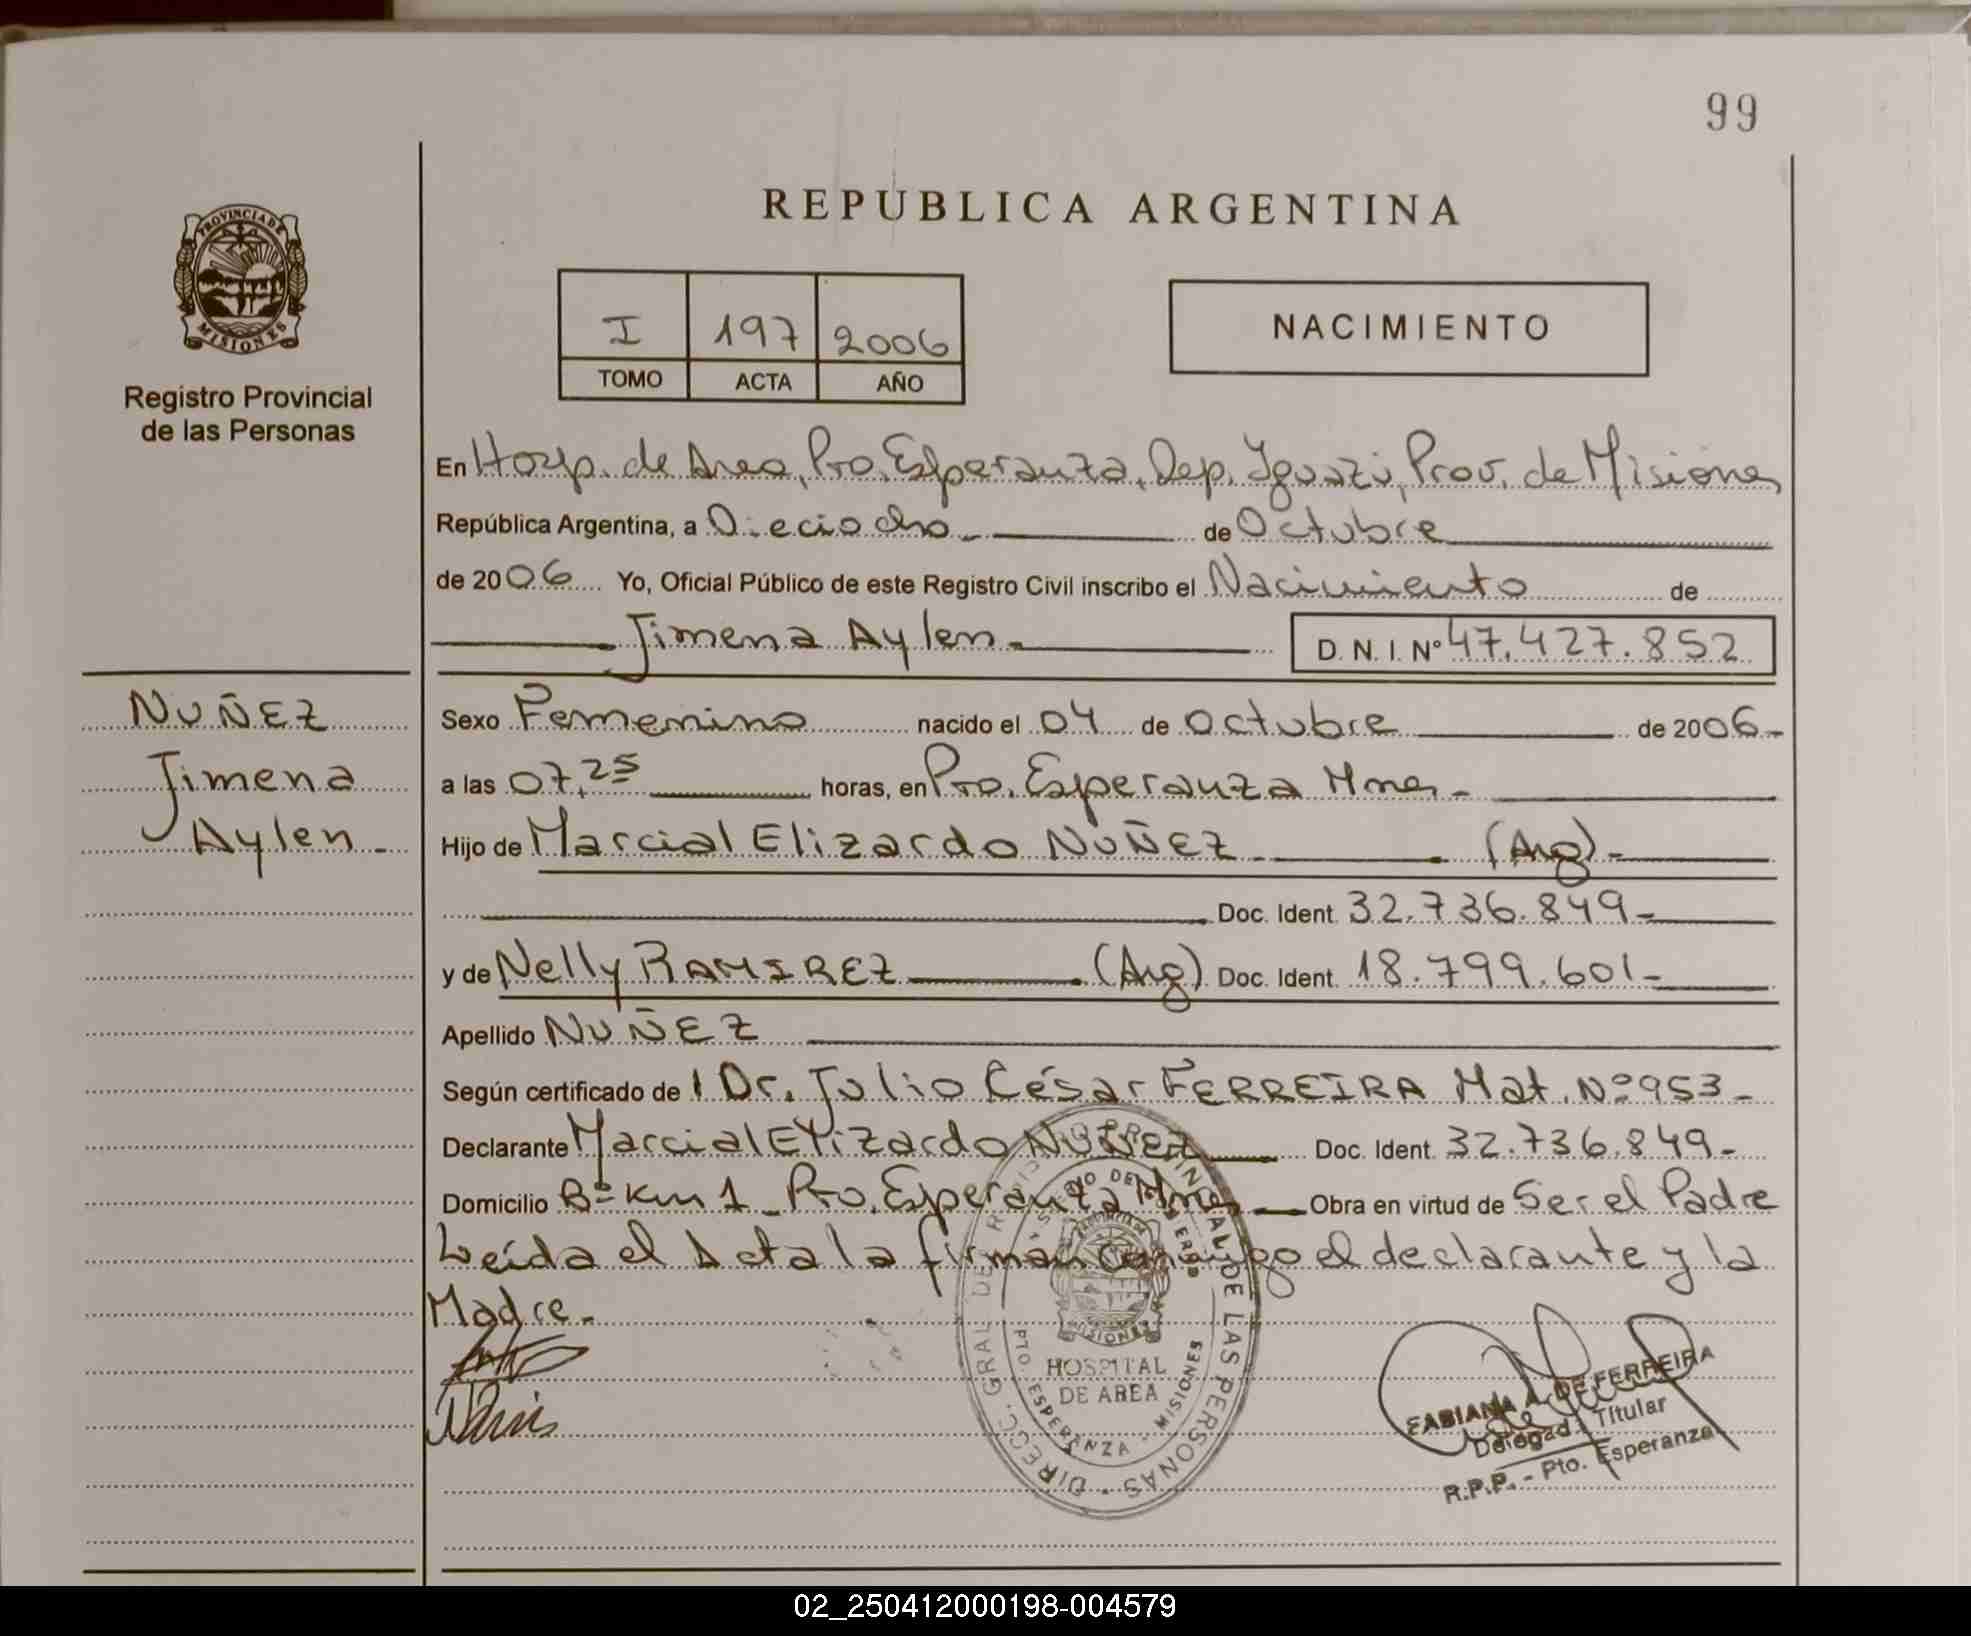 99
REPUBLICA ARGENTINA
PROVINCIA DE
MISIONES
Registro Provincial
de las Personas
I 197 2006
TOMO ACTA AÑO
NACIMIENTO
En Hosp. de Area, Pto. Esperanza, Dep. Iguazú, Prov. de Misiones
República Argentina, a Dieciocho de Octubre
de 2006 Yo, Oficial Público de este Registro Civil inscribo el Nacimiento de
Jimena Aylen.- D. N. I. Nº 47.427.852
NUÑEZ
Jimena
Aylen.-
Sexo Femenino nacido el 04 de Octubre de 2006-
a las 07,25 horas, en Pto. Esperanza Mnes.-
Hijo de Marcial Elizardo NUÑEZ (Arg)-
Doc. Ident. 32.736.849-
y de Nelly RAMIREZ (Arg) Doc. Ident. 18.799.601-
Apellido NUÑEZ
Según certificado de l Dr. Julio César FERREIRA Mat. Nº 953-
Declarante Marcial Elizardo NUÑEZ Doc. Ident. 32.736.849-
Domicilio Bº Km 1 - Pto. Esperanza Mnes Obra en virtud de Ser el Padre
Leída el Acta la firman conmigo el declarante y la
Madre.-
DIRECC. GRAL DEL REGISTRO PROVINCIAL DE LAS PERSONAS
HOSPITAL
DE AREA
PTO. ESPERANZA - MISIONES
FABIANA A. DE FERREIRA
Delegada Titular
R.P.P. - Pto. Esperanza
02_250412000198-004579